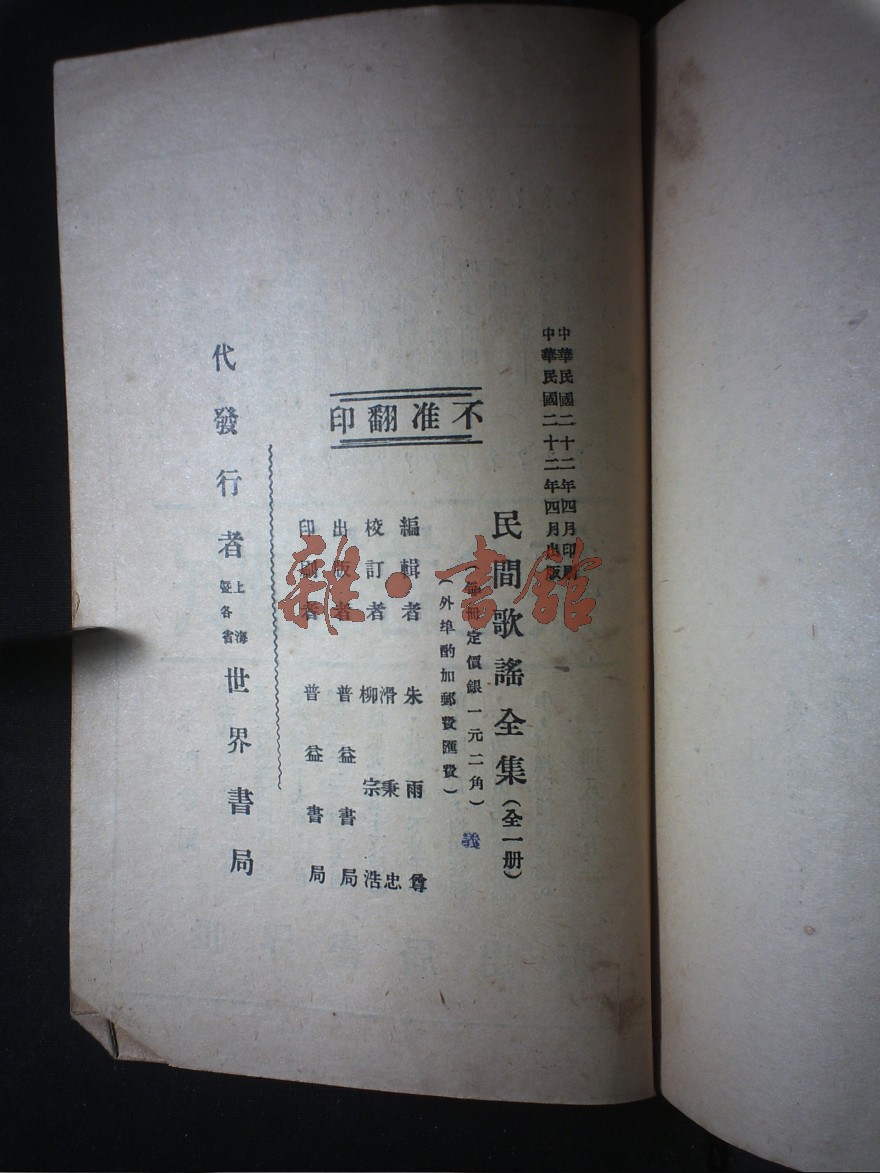 中華民國二十二年四月印刷
中華民國二十二年四月出版
民間歌謠全集(全一册)
(每冊定價銀一元二角)
(外埠酌加郵費匯費)
不准翻印
編輯者 朱雨尊
校訂者 滑秉忠 柳宗浩
出版者 普益書局
印刷者 普益書局
代發行者 上海暨各省 世界書局
雜·書館